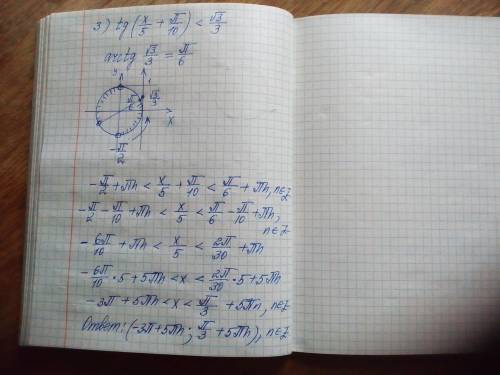 3) tg(x/5 + π/10) < √3/3
arctg √3/3 = π/6
y
1
π/6 √3/3
x
-π/2
-π/2 + πn < x/5 + π/10 < π/6 + πn, n∈Z
-π/2 - π/10 + πn < x/5 < π/6 - π/10 + πn,
n∈Z
-6π/10 + πn < x/5 < 2π/30 + πn
-6π/10 · 5 + 5πn < x < 2π/30 · 5 + 5πn
-3π + 5πn < x < π/3 + 5πn, n∈Z
Ответ: (-3π + 5πn; π/3 + 5πn), n∈Z